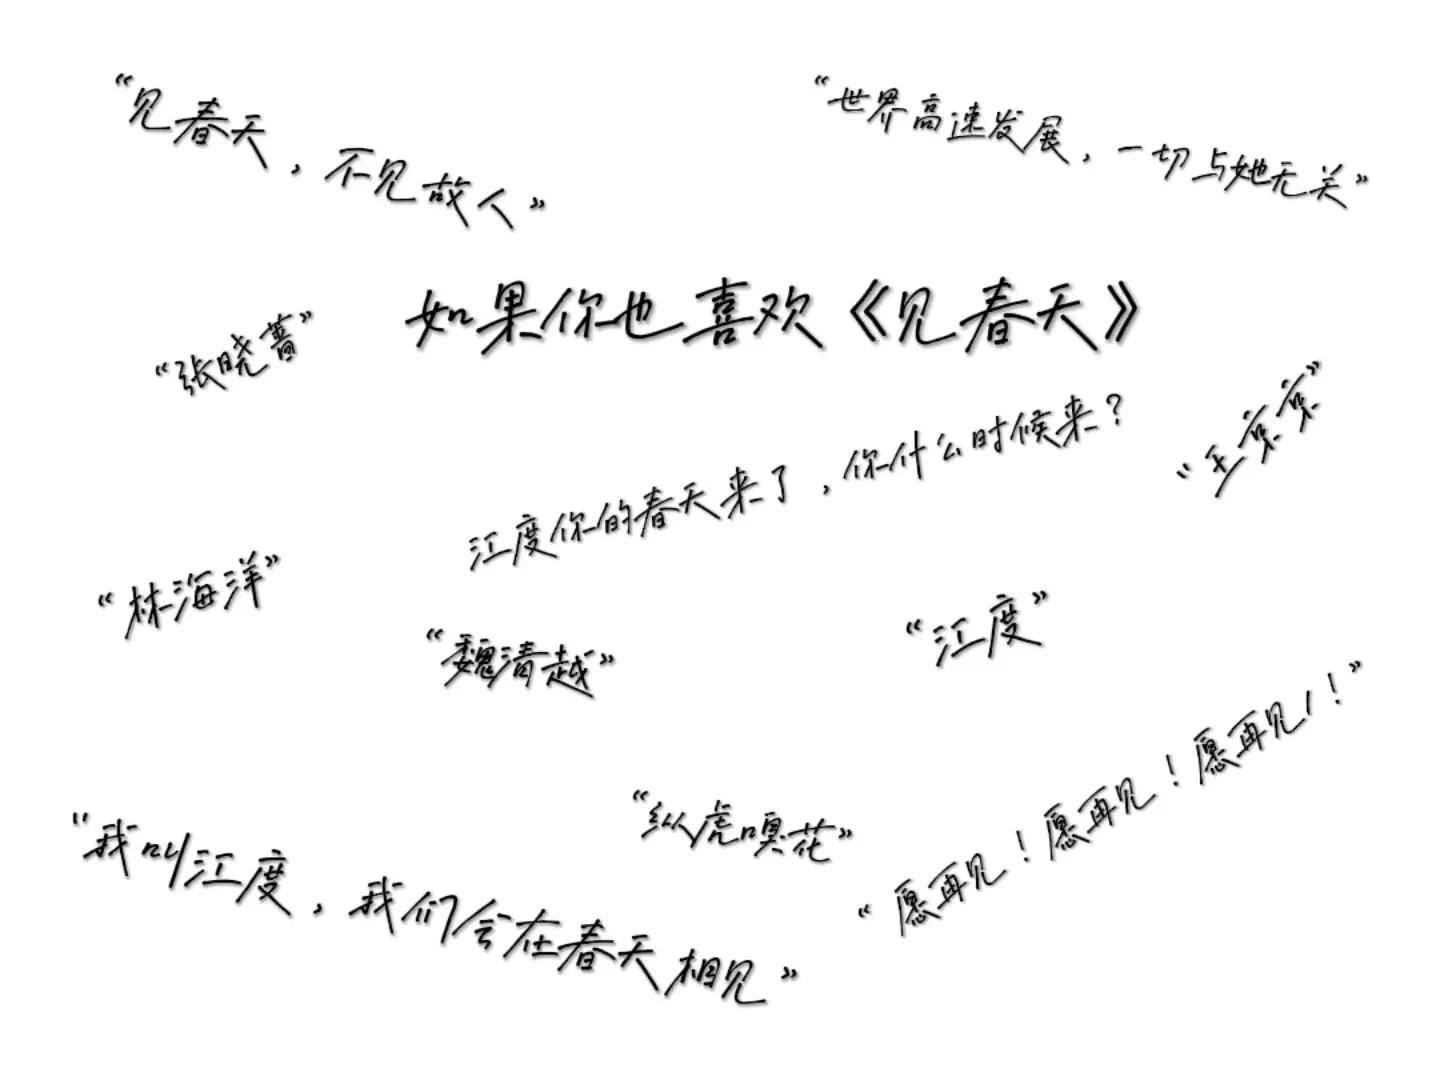 “见春天，不见故人”
“世界高速发展，一切与她无关”
如果你也喜欢《见春天》
“张晓蔷”
“王京京”
江度你的春天来了，你什么时候来？
“林海洋”
“魏清越”
“江度”
“纵虎嗅花”
“愿再见！愿再见！愿再见！！”
“我叫江度，我们会在春天相见”